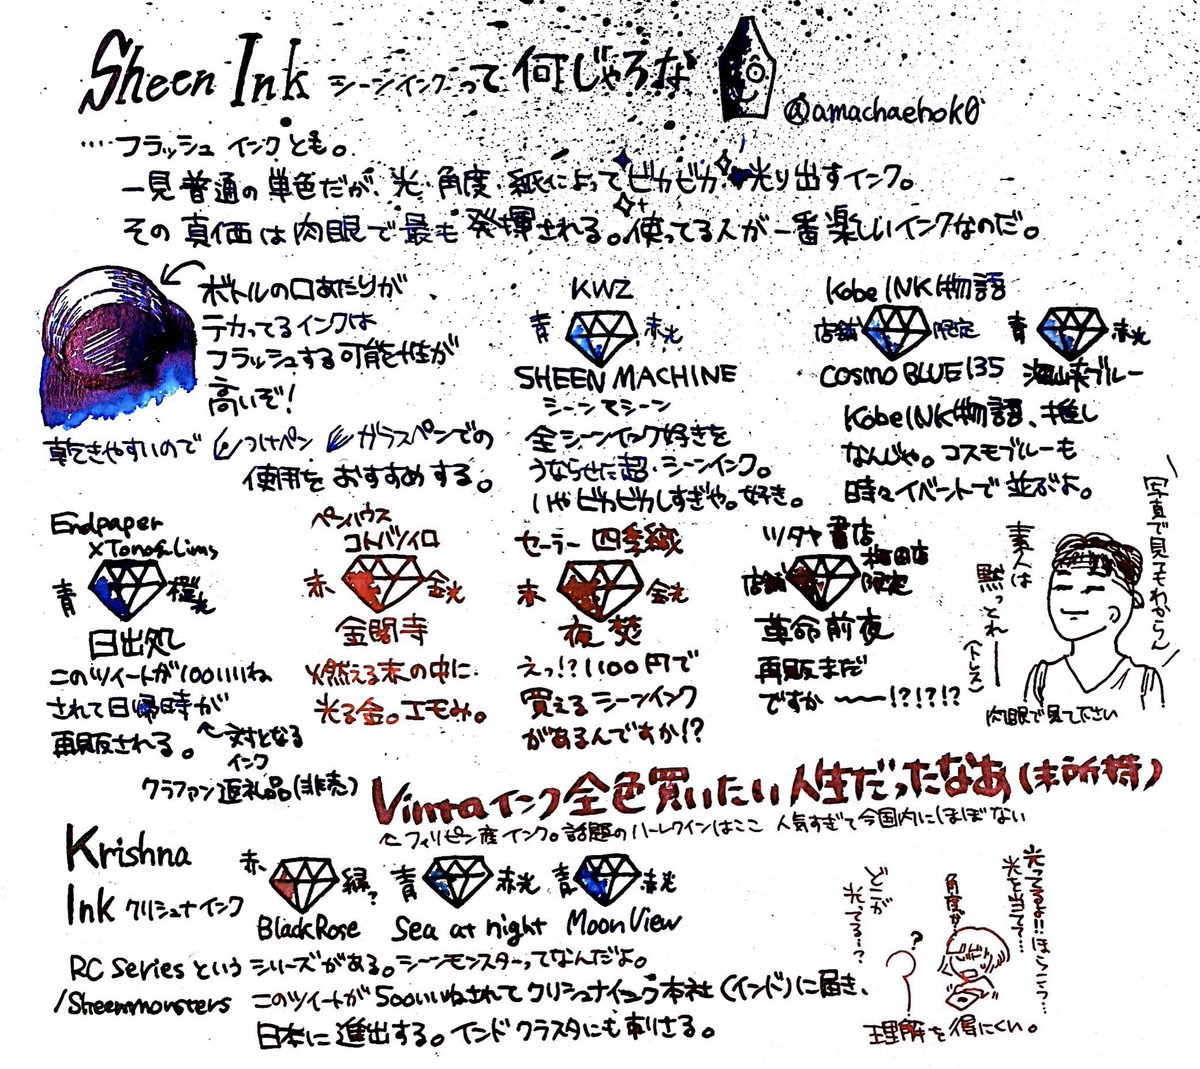 Sheen Ink シーンインクって何じゃろな
@amachaehok0
....フラッシュインクとも。
一見普通の単色だが、光・角度・紙によってビカビカ光り出すインク。
その真価は肉眼で最も発揮される。使ってる人が一番楽しいインクなのだ。
ボトルの口あたりが
テカってるインクは
フラッシュする可能性が
高いぞ!
乾きやすいので つけペン ガラスペンでの
使用をおすすめする。
KWZ
青 赤光
SHEEN MACHINE
シーンマシーン
全シーンインク好きを
うならせた超・シーンインク。
いやビカビカしすぎや。好き。
Kobe INK物語
店舗 限定 青 赤光
COSMO BLUE 135 ブルー
Kobe INK物語、推し
なんじゃ。コスモブルーも
時々イベントで並ぶよ。
Endpaper
×Tono&Lims
青 橙光
日出処
このツイートが100いいね
されて日帰時が
再販される。
←対となる
インク
クラファン返礼品(非売)
ペンハウス
コトバノイロ
赤 金光
金閣寺
燃える赤の中に
光る金。エモみ。
セーラー 四季織
赤 金光
夜焚
えっ!?1100円で
買えるシーンインク
があるんですか!?
ツタヤ書店
梅田店
店舗 限定
革命前夜
再販まだ
ですか〜〜!?!?!?
写真で見てもわからん
素人は
黙っとれ──
(トレス)
肉眼で見て下さい
Vintaインク全色買いたい人生だったなあ(未所持)
←フィリピン産インク。話題のハーレクインはここ 人気すぎて今国内にほぼない
Krishna
Ink クリシュナインク
赤 緑?
Black Rose
青 赤光
Sea at night
青 赤光
Moon View
RC Seriesというシリーズがある。シーンモンスターってなんだよ。
/Sheenmonsters このツイートが500いいねされてクリシュナインク本社(インド)に届き、
日本に進出する。インドクラスタにも刺さる。
光ってるよ!!ほらここ…
光を当てて…
角度が
どこが
光ってる…?
?
理解を得にくい。